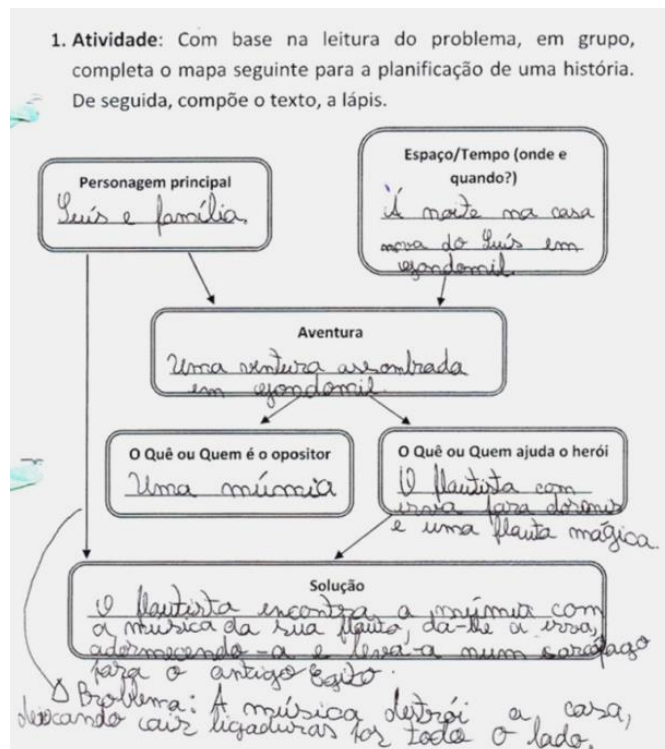 1. Atividade: Com base na leitura do problema, em grupo,
completa o mapa seguinte para a planificação de uma história.
De seguida, compõe o texto, a lápis.
Personagem principal
Luís e família.
Espaço/Tempo (onde e
quando?)
À noite na casa
nova do Luís em
gondomil.
Aventura
Uma ventura assombrada
em gondomil.
O Quê ou Quem é o opositor
Uma múmia
O Quê ou Quem ajuda o herói
O flautista com
erva para dormir
e uma flauta mágica.
Solução
O flautista encontra a múmia com
a música da sua flauta, dá-lhe a erva,
adormecendo-a e leva-a num sarcófago
para o antigo Egito.
Problema: A música destrói a casa,
deixando cair ligaduras por todo o lado.